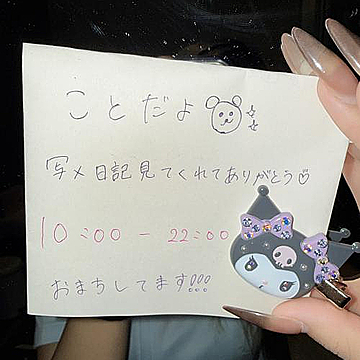 ことだよ
写メ日記見てくれてありがとう♡
10:00 - 22:00
おまちしてます!!!